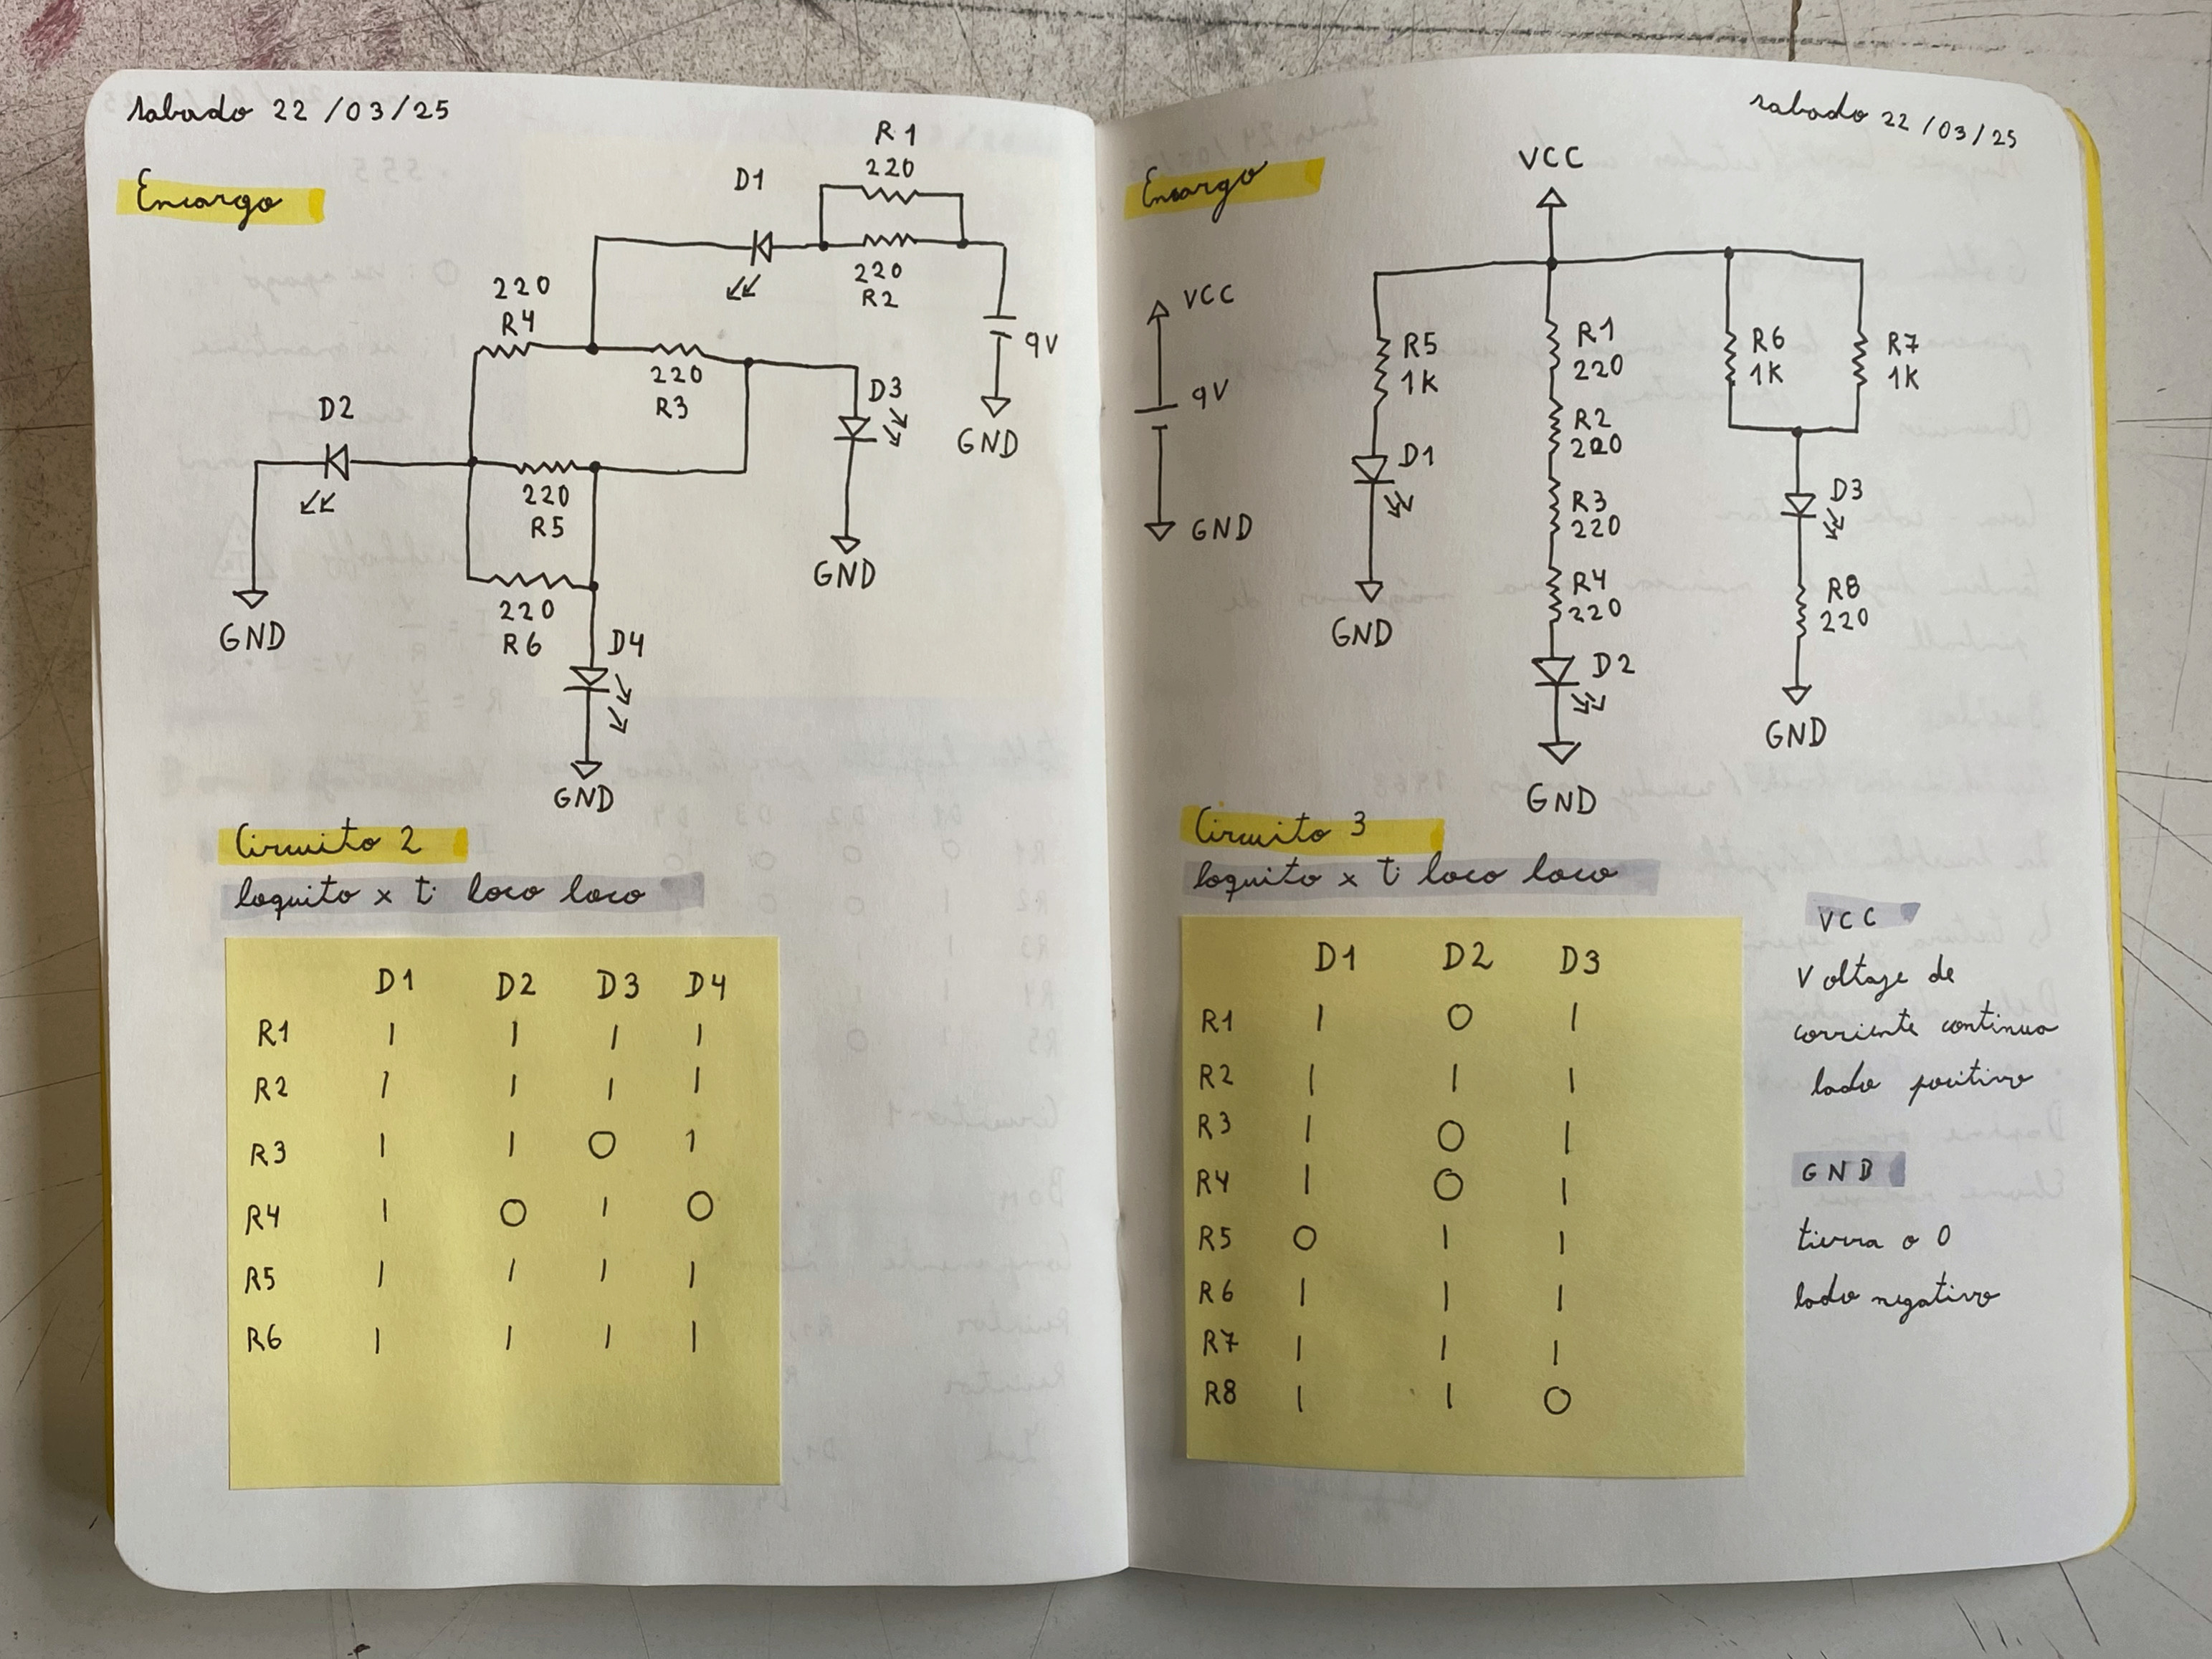 sabado 22/03/25
Encargo
R1
220
D1
220
R2
220
R4
9V
220
R3
D3
GND
D2
220
R5
GND
220
R6
D4
GND
GND
Circuito 2
loquito x ti loco loco
D1 D2 D3 D4
R1 1 1 1 1
R2 1 1 1 1
R3 1 1 0 1
R4 1 0 1 0
R5 1 1 1 1
R6 1 1 1 1
sabado 22/03/25
Encargo
VCC
VCC
9V
GND
R5
1K
R1
220
R6
1K
R7
1K
R2
220
D1
R3
220
D3
R4
220
R8
220
GND
D2
GND
GND
Circuito 3
loquito x ti loco loco
D1 D2 D3
R1 1 0 1
R2 1 1 1
R3 1 0 1
R4 1 0 1
R5 0 1 1
R6 1 1 1
R7 1 1 1
R8 1 1 0
VCC
Voltaje de
corriente continua
lado positivo
GND
tierra o 0
lado negativo